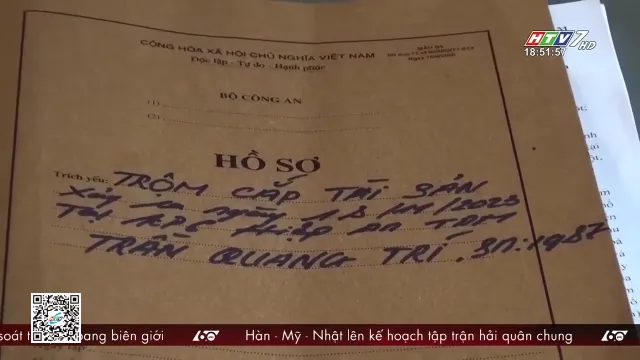 HTV7 HD
18:51:57
CỘNG HÒA XÃ HỘI CHỦ NGHĨA VIỆT NAM
Độc lập - Tự do - Hạnh phúc
BỘ CÔNG AN
(1)
(2)
HỒ SƠ
Trích yếu: TRỘM CẮP TÀI SẢN
Xảy ra ngày
Tại KP6 Hiệp An TDM
TRẦN QUANG TRÍ. SN: 1987
soát
ang biên giới
Hàn - Mỹ - Nhật lên kế hoạch tập trận hải quân chung